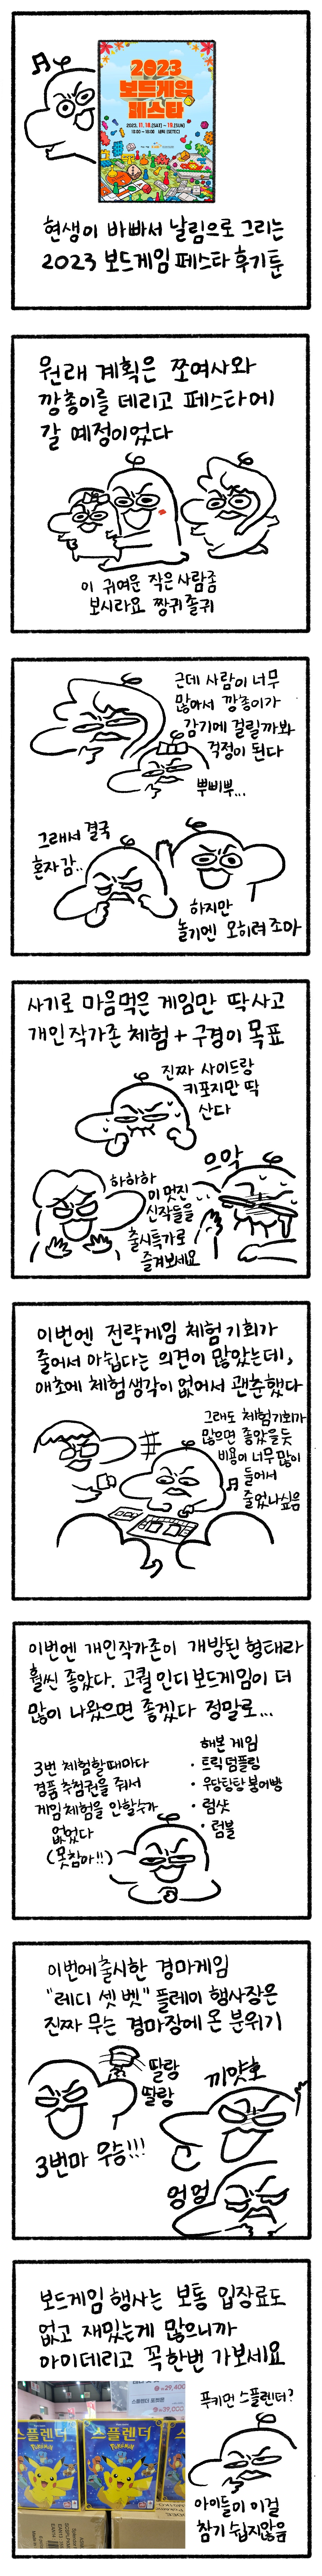 2023
보드게임
페스타
2023. 11. 18.(SAT) - 19.(SUN)
현생이 바빠서 날림으로 그리는
2023 보드게임 페스타 후기툰
원래 계획은 쪼여사와
깡총이를 데리고 페스타에
갈 예정이었다
이 귀여운 작은 사람좀
보시라요 짱귀 졸귀
근데 사람이 너무
많아서 깡총이가
감기에 걸릴까봐
걱정이 된다
뿌삐뿌...
그래서 결국
혼자 감..
하지만
놀기엔 오히려 조아
사기로 마음먹은 게임만 딱 사고
개인작가존 체험 + 구경이 목표
진짜 사이드랑
키포지만 딱
산다
하하하
이 멋진
신작들을
출시특가로
즐겨보세요
으악
이번엔 전략게임 체험기회가
줄어서 아쉽다는 의견이 많았는데,
애초에 체험생각이 없어서 괜춘했다
그래도 체험기회가
많으면 좋았을듯
비용이 너무 많이
들어서
줄었나싶음
이번엔 개인작가존이 개방된 형태라
훨씬 좋았다. 고퀄 인디 보드게임이 더
많이 나왔으면 좋겠다 정말로...
3번 체험할때마다
경품 추첨권을 줘서
게임체험을 안할수가
없었다
(못참아!!)
해본 게임
· 트릭덤플링
· 우당탕탕 붕어빵
· 럼샷
· 텀블
이번에 출시한 경마게임
"레디 셋 벳" 플레이 행사장은
진짜 무슨 경마장에 온 분위기
딸랑
딸랑
3번마 우승!!!
끼얏호
엉엉
보드게임 행사는 보통 입장료도
없고 재밌는게 많으니까
아이데리고 꼭 한번 가보세요
푸키먼 스플렌더?
아이들이 이걸
참기 쉽지않음
29,400
29,000
스플렌더
POKÉMON
스플렌더
POKÉMON